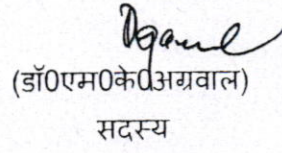 (डॉ0एम0के0अग्रवाल)
सदस्य